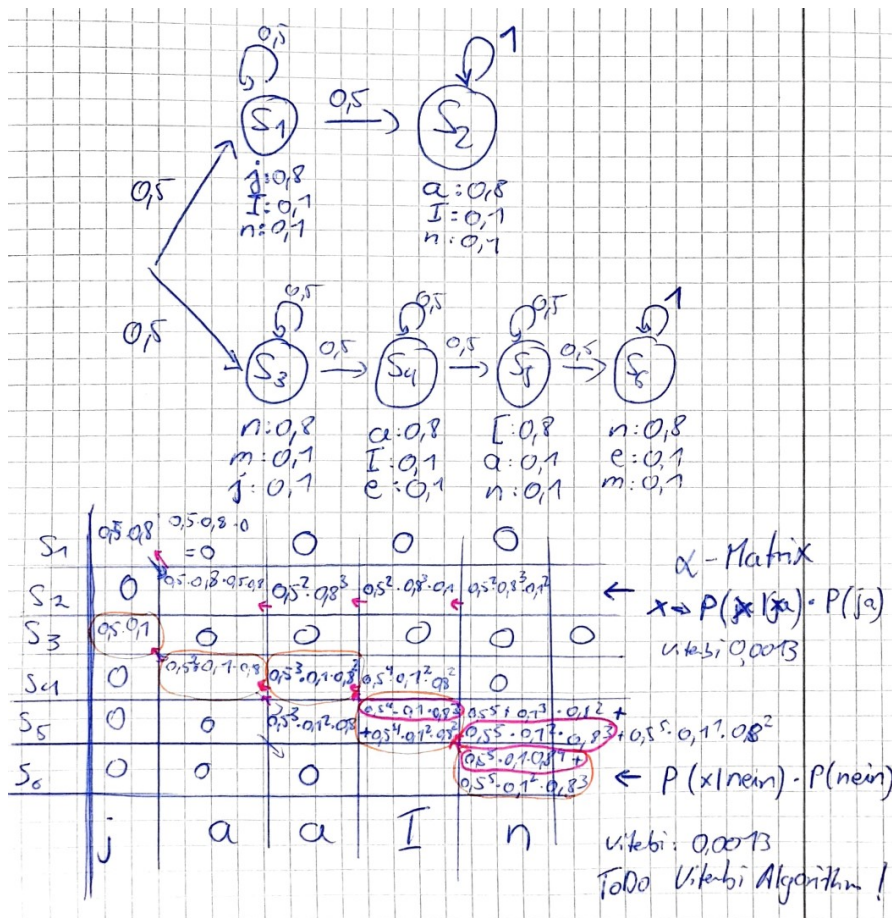 0,5
1
S1
0,5
S2
0,5
j:0,8
I:0,1
n:0,1
a:0,8
I:0,1
n:0,1
0,5
0,5
0,5
0,5
1
S3
0,5
S4
0,5
S5
0,5
S6
n:0,8
m:0,1
j:0,1
a:0,8
I:0,1
e:0,1
I:0,8
a:0,1
n:0,1
n:0,8
e:0,1
m:0,1
S1 0,5·0,8 0,5·0,8·0 =0 0 0 0
α-Matrix
S2 0 0,5·0,8·0,5·0,8 0,5²·0,8³ 0,5²·0,8³·0,1 0,5²·0,8³·0,1²
← P(x|ja)·P(ja)
S3 0,5·0,1 0 0 0 0 0
vitebi 0,0013
S4 0 0,5²·0,1·0,8 0,5³·0,1·0,8² 0,5⁴·0,1²·0,8² 0
S5 0 0 0,5³·0,1²·0,8 0,5⁴·0,1·0,8³ +0,5⁴·0,1²·0,8² 0,5⁵·0,1³·0,8² + 0,5⁵·0,1²·0,8³ +0,5⁵·0,1²·0,8²
S6 0 0 0 0,5⁵·0,1·0,8⁴ + 0,5⁵·0,1²·0,8³
← P(x|nein)·P(nein)
j a a I n
vitebi: 0,0013
ToDo Vitenbi Algorithm !